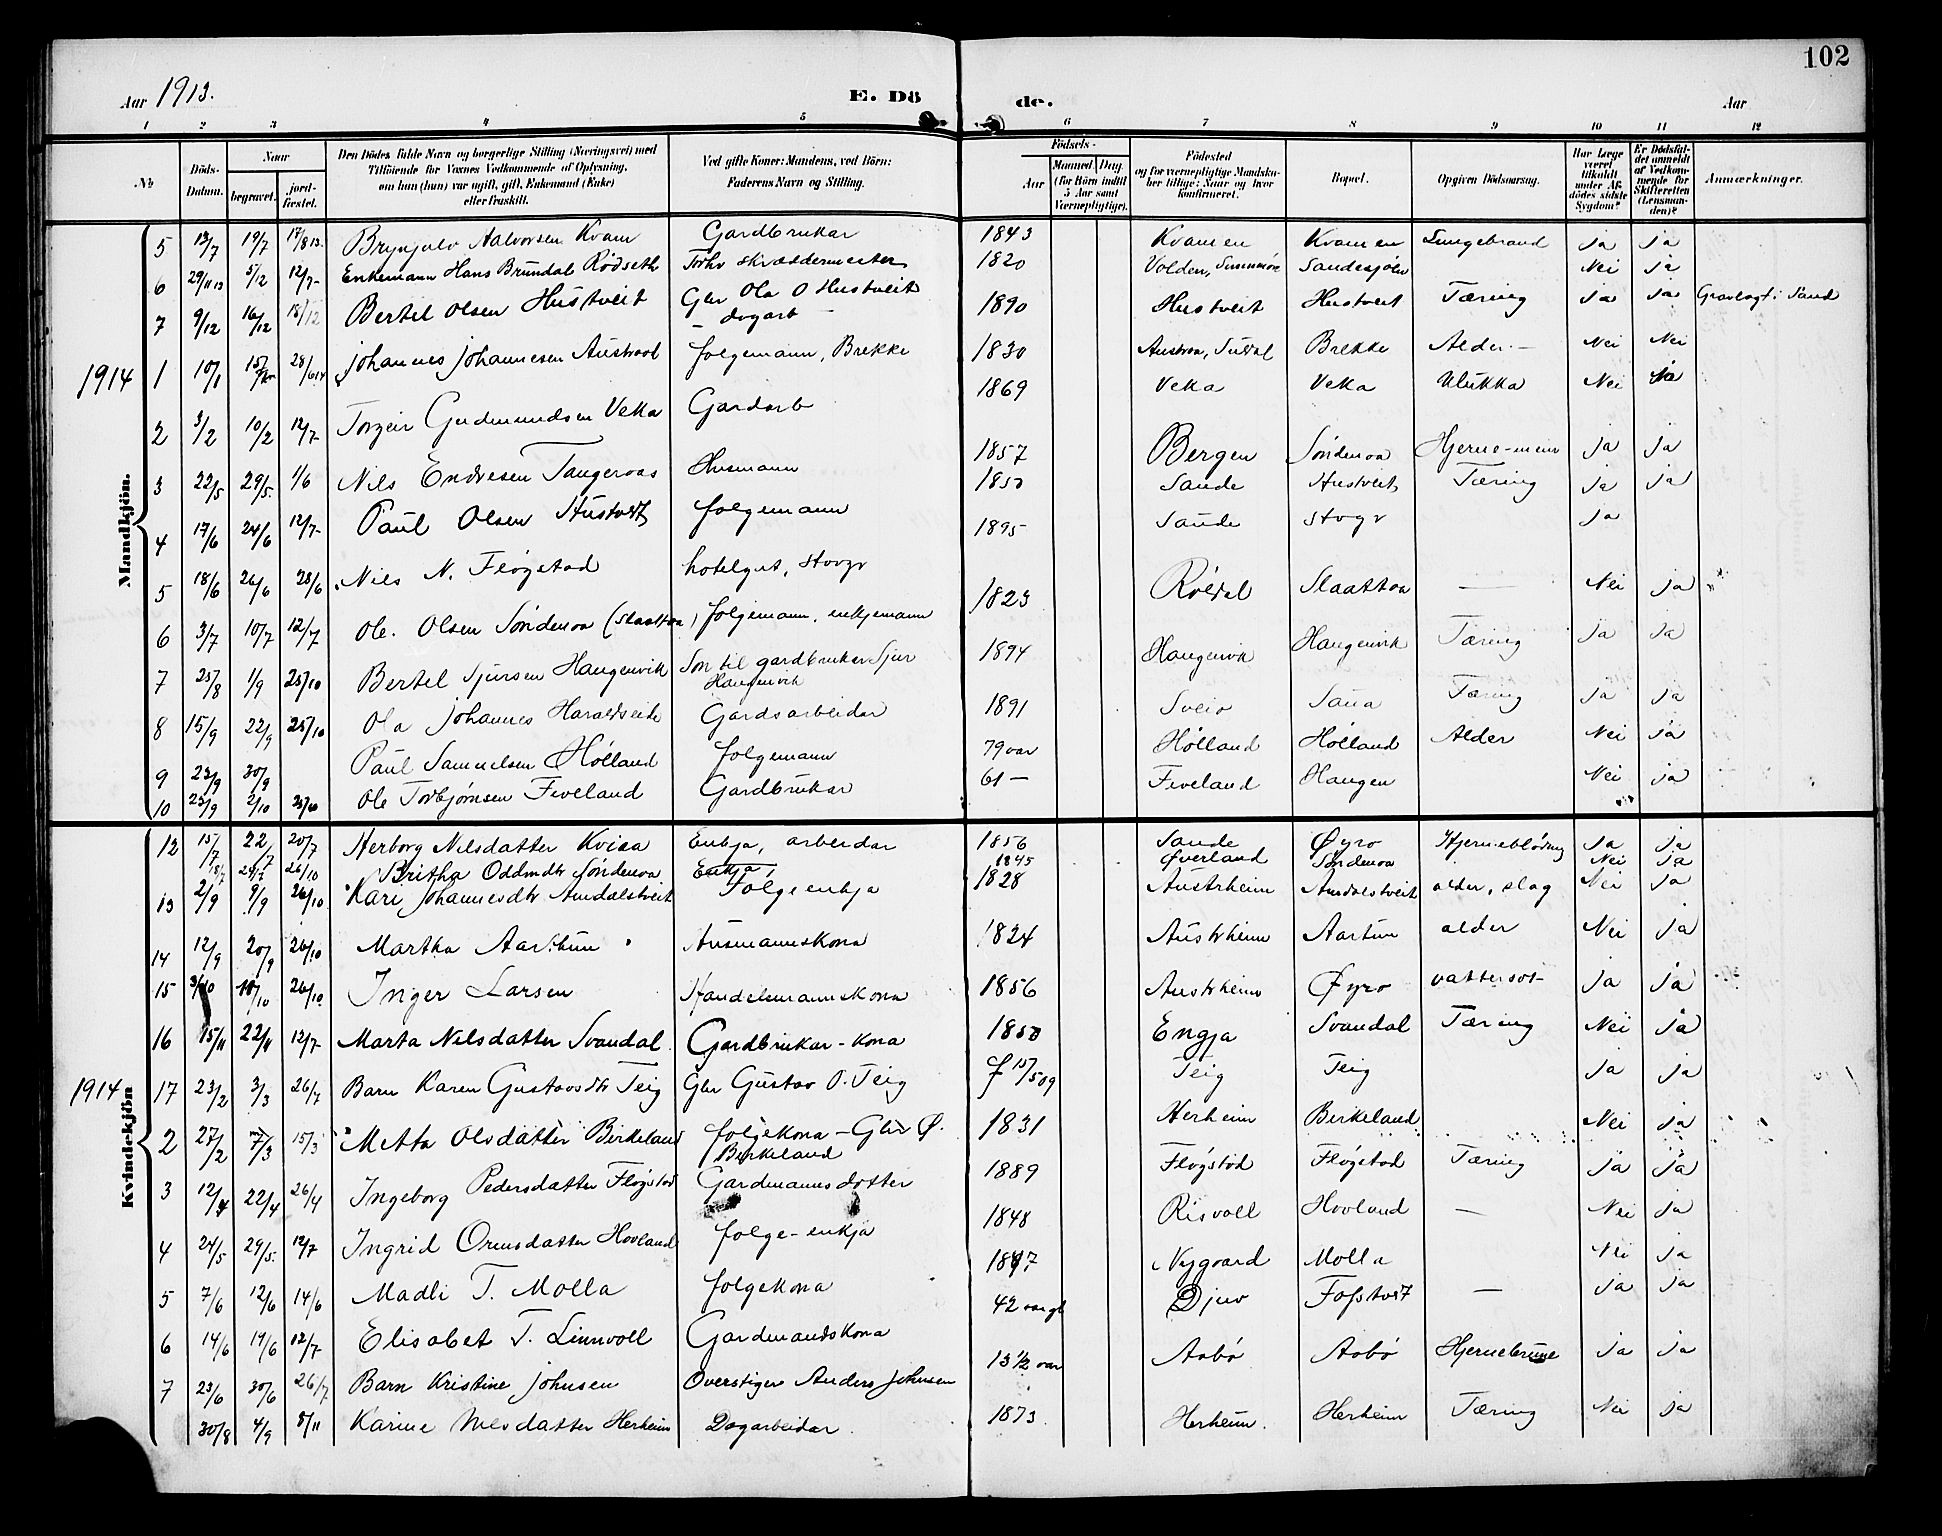 102
Aar 1913.
E. Dö de.
Aar
1 2 3 4 5 6 7 8 9 10 11 12
No
Döds-Datum.
Naar begravet. jordfæstet.
Den Dödes fulde Navn og borgerlige Stilling (Næringsvei) med Tilföiende for Voxnes Vedkommende af Oplysning, om han (hun) var ugift, gift, Enkemand (Enke) eller fraskilt.
Ved gifte Koner: Mandens, ved Börn: Faderens Navn og Stilling.
Födsels-
Aar
Maaned Dag. (for Börn indtil 5 Aar samt Værnepligtige).
Födested og for værnepligtige Mandskaber tillige: Naar og hvor konfirmeret.
Bopæl.
Opgiven Dödsaarsag.
Har Læge været tilkaldt under Afdödes sidste Sygdom?
Er Dödsfaldet anmeldt af Vedkommende for Skifteretten (Lensmanden)?
Anmærkninger.
Mandkjön.
5 13/7 19/7 17/8 13. Brynjulv Aalvorsen Kvam Gardbrukar 1843 Kvamen Kvamen Lungebrand ja ja
6 29/11 13 5/12 12/7- Enkemann Hans Brundal Rødseth Forhv skræddermester 1820 Volden, Sunnmøre Sandesjøen Nei ja
7 9/12 16/12 18/12 Bertel Olsen Hustveit Gbr Ola O Hustveit dagarb 1890 Hustveit Hustveit Tæring ja ja Gravlagt i Sand
1914
1 10/1 15/1 28/6 14 Johannes Johannesen Austraat folgemann, Brekke 1830 Austraa, Suldal Brekke Alder - Nei Nei
2 3/2 10/2 12/7- Torgeir Gudmundsen Veka Gardarb 1869 Veka Veka Ulukka Nei ja
3 22/5 29/5. 1/6 Nils Endresen Tangeraas Husmann 1857 Bergen Søndenaa Hjerne- ja ja
4 17/6 24/6 12/7- Paul Olsen Hustveit folgemann 1850 Sande Hustveit Tæring ja ja
5 18/6 26/6 28/6 Nils N. Fløgstad hotelgut, Stovgr 1895 Sande Stogr ja
6 3/7 10/7 12/7 Ole. Olsen Søndenaa (Slaattaa) folgemann, enkjemann 1823 Røldal Slaattaa — Nei ja
7 25/8 1/9 25/10 Bertel Sjursen Haugenvik Son til gardbrukar Sjur Haugenvik 1894 Haugenvik Haugenvik Tæring ja ja
8 15/9 22/9 25/10 Ola Johannes Haraldseide Gardsarbeidar 1891 Sveio Saua Tæring ja ja
9 23/9 30/9 Paul Samuelsen Hølland folgemann 79 aar Hølland Hølland Alder Nei ja
10 25/9 2/10 25/10 Ole Torbjørnsen Fiveland Gardbrukar 61 — Fiveland Haugen Nei ja
Kvindekjön
12 15/7 22/7 20/7 Herborg Nilsdatter Kviaa Enkja, arbeidar 1856 Sande Øyro Hjerneblöding Ja ja
18/7 26/10 Britha Oddmdtr Søndenaa Enkja, 1845 Øverland Søndenaa Nei ja
13 2/9 9/9 26/10 Kari Johannesdtr Amdalstveit Folgeenkja 1828 Austrheim Amdalstveit alder, slag Nei ja
14 12/9 20/9 26/10 Martha Aarthun Husmannskona 1824 Austrheim Aartun alder Nei ja
15 3/10 10/10 26/10 Inger Larsen Handelsmannskona 1856 Austrheim Øyro vattersot- Ja ja
16 15/11 22/11 12/7- Marta Nilsdatter Svandal Gardbrukar-kona 1850 Engja Svandal Tæring Nei ja
1914
17 23/2 3/3 26/7 Barn Karen Gustavsdtr Teig Gbr Gustav O. Teig f 15/5 09 Teig Teig ja ja
2 27/2 7/3 15/3 Metta Olsdatter Birkeland folgekona - Gbr Ø. Birkeland 1831 Herheim Birkeland Nei ja
3 12/4 22/4 26/4 Ingeborg Pedersdatter Fløgstad Gardmannsdotter 1889 Fløgstad Fløgstad Tæring ja ja
4 24/5 29/5. 12/7 Ingrid Ormsdatter Hovland folge-enkja 1848 Risvoll Hovland — Nei ja
5 7/6 12/6 14/6 Madli T. Molla folgekona 1847 Nygaard Molla Nei ja
6 14/6 19/6 12/7 Elisabet T. Linnvoll Gardmandskona 42 aar gl Djuv Fosstveit — ja ja
7 23/6 30/6 26/7 Barn Kristine Johnsen Overstiger Anders Johnsen 13 1/2 aar Aabø Aabø Hjernebrune ja ja
30/8 4/9 8/11 Karine Nilsdatter Herheim Dagarbeidar 1873 Herheim. Herheim Tæring Nei ja